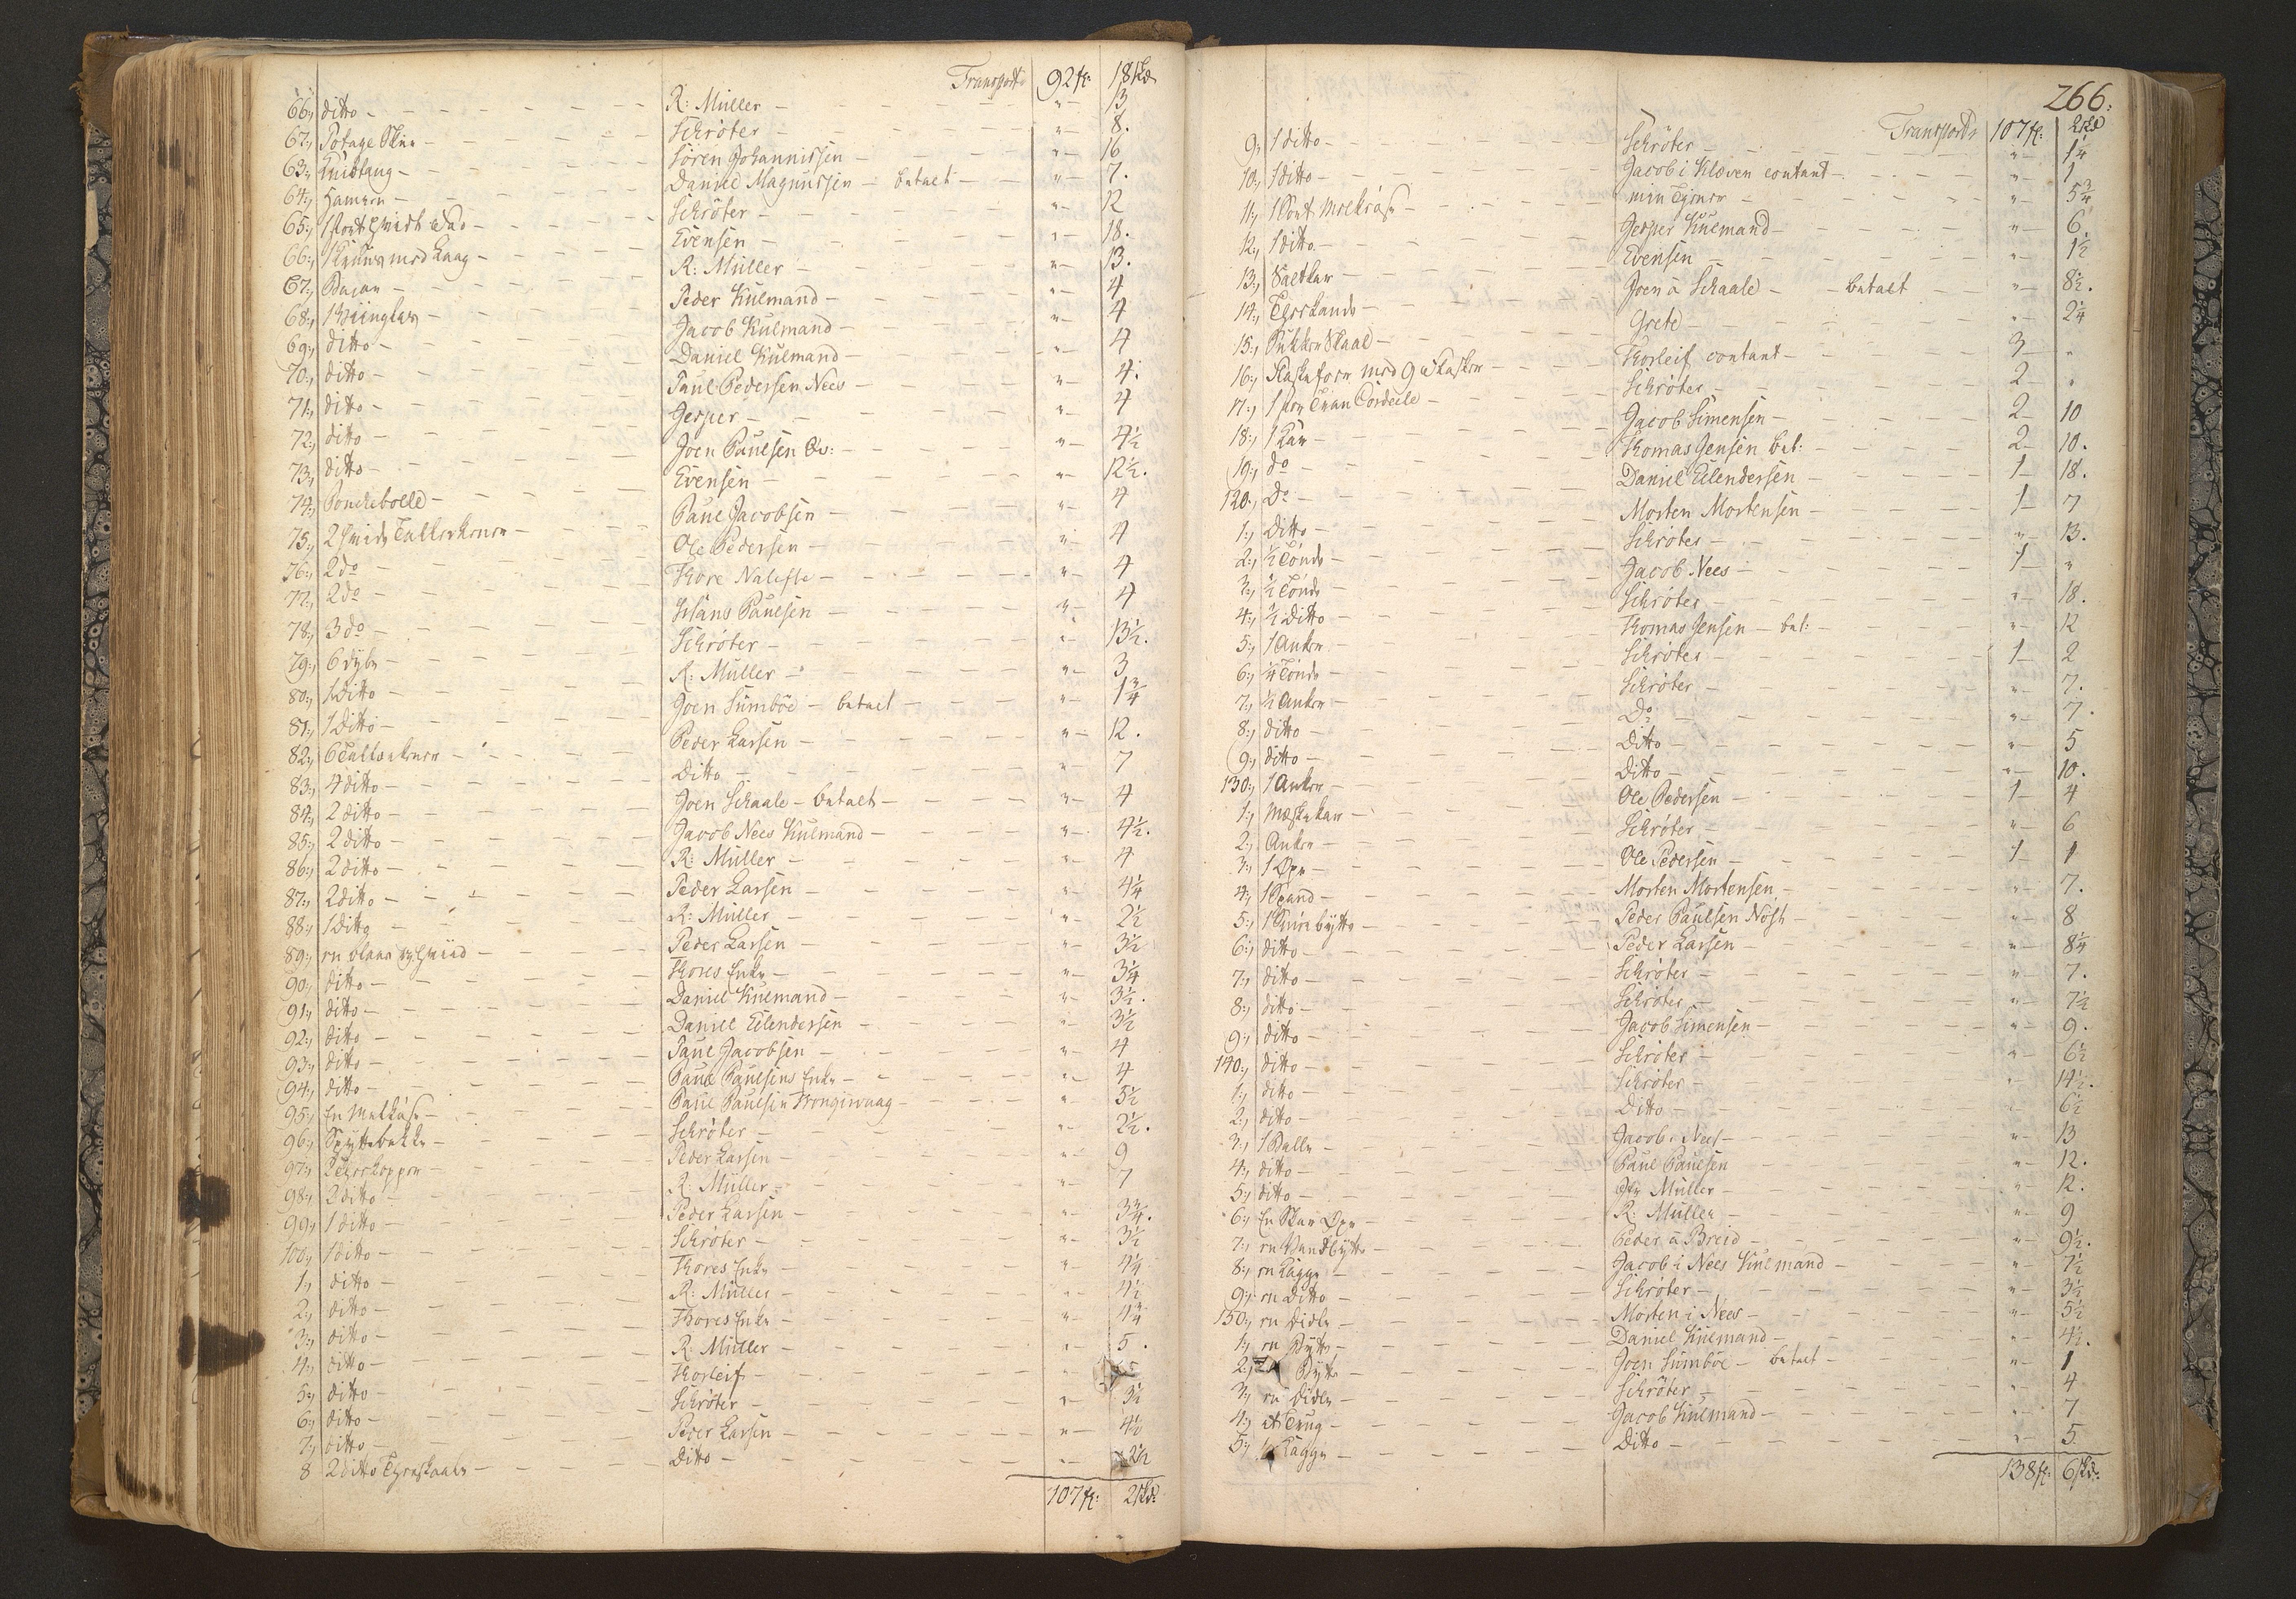 Transport 92 fl: 18 skd
66:, ditto - R: Müller - " - 13
62:, Potage Skee - Schröter - " - 8.
63:, Knibtang - Sören Johannissen - " - 16
64:, Hamer - Daniel Magnussen - betalt - " - 7.
65:, 1 Schröter - " - 12
66:, 1 med Laag - Evensen - " - 18.
67:, R: Müller - " - 13.
68:, 1 Peder Kulmand - " - 4
69:, ditto - Jacob Kulmand - " - 4
70:, ditto - Daniel Kulmand - " - 4
71:, ditto - Paul Pedersen Nees - " - 4.
72:, ditto - Jesper - " - 4
73:, ditto - Joen Paulsen Qv: - " - 4½
74:, Ponchebolle - Evensen - " - 12½.
75:, 2 hvide Tallerkener - Paul Jacobsen - " - 4
76:, 2 do - Ole Pedersen - " - 4
77:, 2 do - Thore - " - 4
78:, 3 do - Hans Paulsen - " - 4
79:, 6 dybe - Schröter - " - 13½.
80:, 1 Ditto - R: Müller - " - 3
81:, 1 Ditto - Joen Sumböe - betalt - " - 1¾
82:, 6 Tallerkener - Peder Larsen - " - 12.
83:, 4 ditto - Ditto - " - 7
84:, 2 ditto - Joen Schaale - betalt - " - 4
85:, 2 ditto - Jacob Nees Kulmand - " - 4½.
86:, 2 ditto - R: Müller - " - 4
87:, 2 ditto - Peder Larsen - " - 4¼
88:, 1 Ditto - R: Müller - " - 2½
89:, en blaae og hviid - Peder Larsen - " - 3½
90:, ditto - Thores Enke - " - 3¼
91:, ditto - Daniel Kulmand - " - 3½.
92:, ditto - Daniel Eilendersen - " - 3½
93:, ditto - Paul Jacobsen - " - 4
94:, ditto - Paul Paulsens Enke - " - 4
95:, En - Paul Paulsen Trongiwaag - " - 5½
96:, Spyttebakke - Schröter - " - 2½.
97:, Peder Larsen - " - 9
98:, 2 ditto - R: Müller - " - 7
99:, 1 ditto - Peder Larsen - " - 3¾.
100:, 1 ditto - Schröter - " - 3½
1:, ditto - Thores Enke - " - 4¼
2:, ditto - R: Müller - " - 4½
3:, ditto - Thores Enke - " - 4¾
4:, ditto - R: Müller - " - 5.
5:, ditto - Thorleif - " - 5
6:, ditto - Schröter - " - 3½
7:, ditto - Peder Larsen - " - 4½
8 2 ditto Theeskaale - Ditto - " - 2½
107 fl: 2 skd:
266.
Transport 107 fl: 2 skd
9:, 1 ditto - Schröter - " - 1¼
10:, 1 ditto - Jacob i Kloven contant - " - 1
11:, 1 - min - " - 5¾
12:, 1 ditto - Jesper Kulmand - " - 6
13:, Saltkar - Evensen - " - 1½
14:, Theekande - Joen à Schaale - betalt - " - 8½.
15:, Sukker Skaal - Grete - " - 2¼
16:, med 9 Flasker - Thorleif contant - 3 - "
17:, 1 - Schröter - 2 - "
18:, 1 Kar - Jacob Simensen - 2 - 10
19:, do - Thomas Jensen bet: - 2 - 10.
120:, Do - Daniel Eilendersen - 1 - 18.
1:, Ditto - Morten Mortensen - 1 - 7
2:, ½ Tönde - Schröter - " - 13.
3:, ½ Tönde - Jacob Nees - 1 - "
4:, ½ Ditto - Schröter - " - 18.
5:, 1 Anker - Thomas Jensen - bet: - " - 12
6:, ¼ Tönde - Schröter - 1 - 2
7:, ½ Anker - Schröter - " - 7.
8:, ditto - Do - " - 7.
9:, ditto - Ditto - " - 5
130:, 1 Anker - Ditto - " - 10.
1:, Mæskekar - Ole Pedersen - 1 - 4
2:, Anker - Schröter - " - 6
3:, 1 Øxe - Ole Pedersen - 1 - 1
4:, 1 Spand - Morten Mortensen - " - 7.
5:, 1 bytte - Peder Paulsen Nöst - " - 8
6:, ditto - Peder Larsen - " - 8¼
7:, ditto - Schröter - " - 7.
8:, ditto - Schröter - " - 7½
9:, ditto - Jacob Simensen - " - 9.
140:, ditto - Schröter - " - 6½
1:, ditto - Schröter - " - 14½.
2:, ditto - Ditto - " - 6½
3:, 1 Balle - Jacob i Nees - " - 13
4:, ditto - Paul Paulsen " - 12.
5:, ditto - Müller - " - 12.
6:, En Øxe - R: Müller - " - 9
7:, en Vandbytte - Peder à Breid - " - 9½.
8:, en Lagge - Jacob i Nees Kulmand - " - 7½
9:, en Ditto - Schröter - " - 3½
150:, en Didle - Morten i Nees - " - 5½
1:, en Bytte - Daniel Kulmand - " - 4½.
2:, Bytte - Joen Sumböe - betalt - " - 1
3:, en Didle - Schröter - " - 4
4:, et Trug - Jacob Kulmand - " - 7
5:, Lagge - Ditto - " - 5
138 fl: 6 skd: